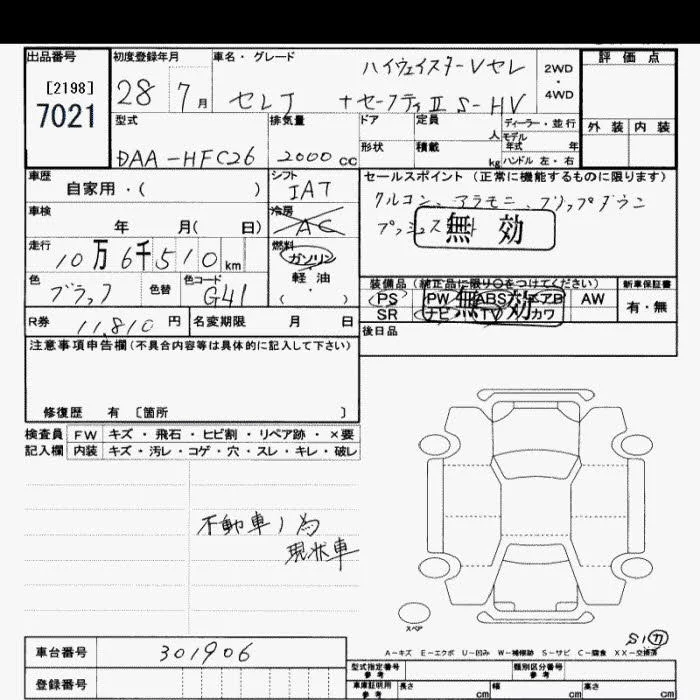 出品番号 初度登録年月 車名・グレード 評価点
[2198] 7021
28 7月 セレナ ハイウェイスターVセレ
+セーフティII S-HV
2WD・4WD
外装 内装
型式 排気量 ドア 定員 ディーラー・並行
人 モデル年式 年
DAA-HFC26 2000cc 形状 積載 kg ハンドル 左・右
車歴 シフト セールスポイント (正常に機能するものに限ります)
自家用・( ) IAT
車検 冷房
年 月( 日) AC
無効
走行 燃料
10万6千510km ガソリン
軽油
( ・ )
色 色替 色コード
ブラック G41
装備品 (純正品に限り○をつけてください) 新車保証書
PS PW ABS エアB AW 有・無
SR ナビ TV カワ
無効
R券 11,810円 名変期限 月 日
後日品
注意事項申告欄(不具合内容等は具体的に記入して下さい)
修復歴 有 〔箇所 〕
検査員 FW キズ・飛石・ヒビ割・リペア跡・×要
記入欄 内装 キズ・汚レ・コゲ・穴・スレ・キレ・破レ
不動車ノ為
現状車
スペア
A−キズ E−エクボ U−凹み W−補修跡 S−サビ C−腐食 XX−交換済
車台番号 301906
登録番号
型式指定番号 参考 類別区分番号 参考
車庫証明用 参考 長さ cm 幅 cm 高さ cm